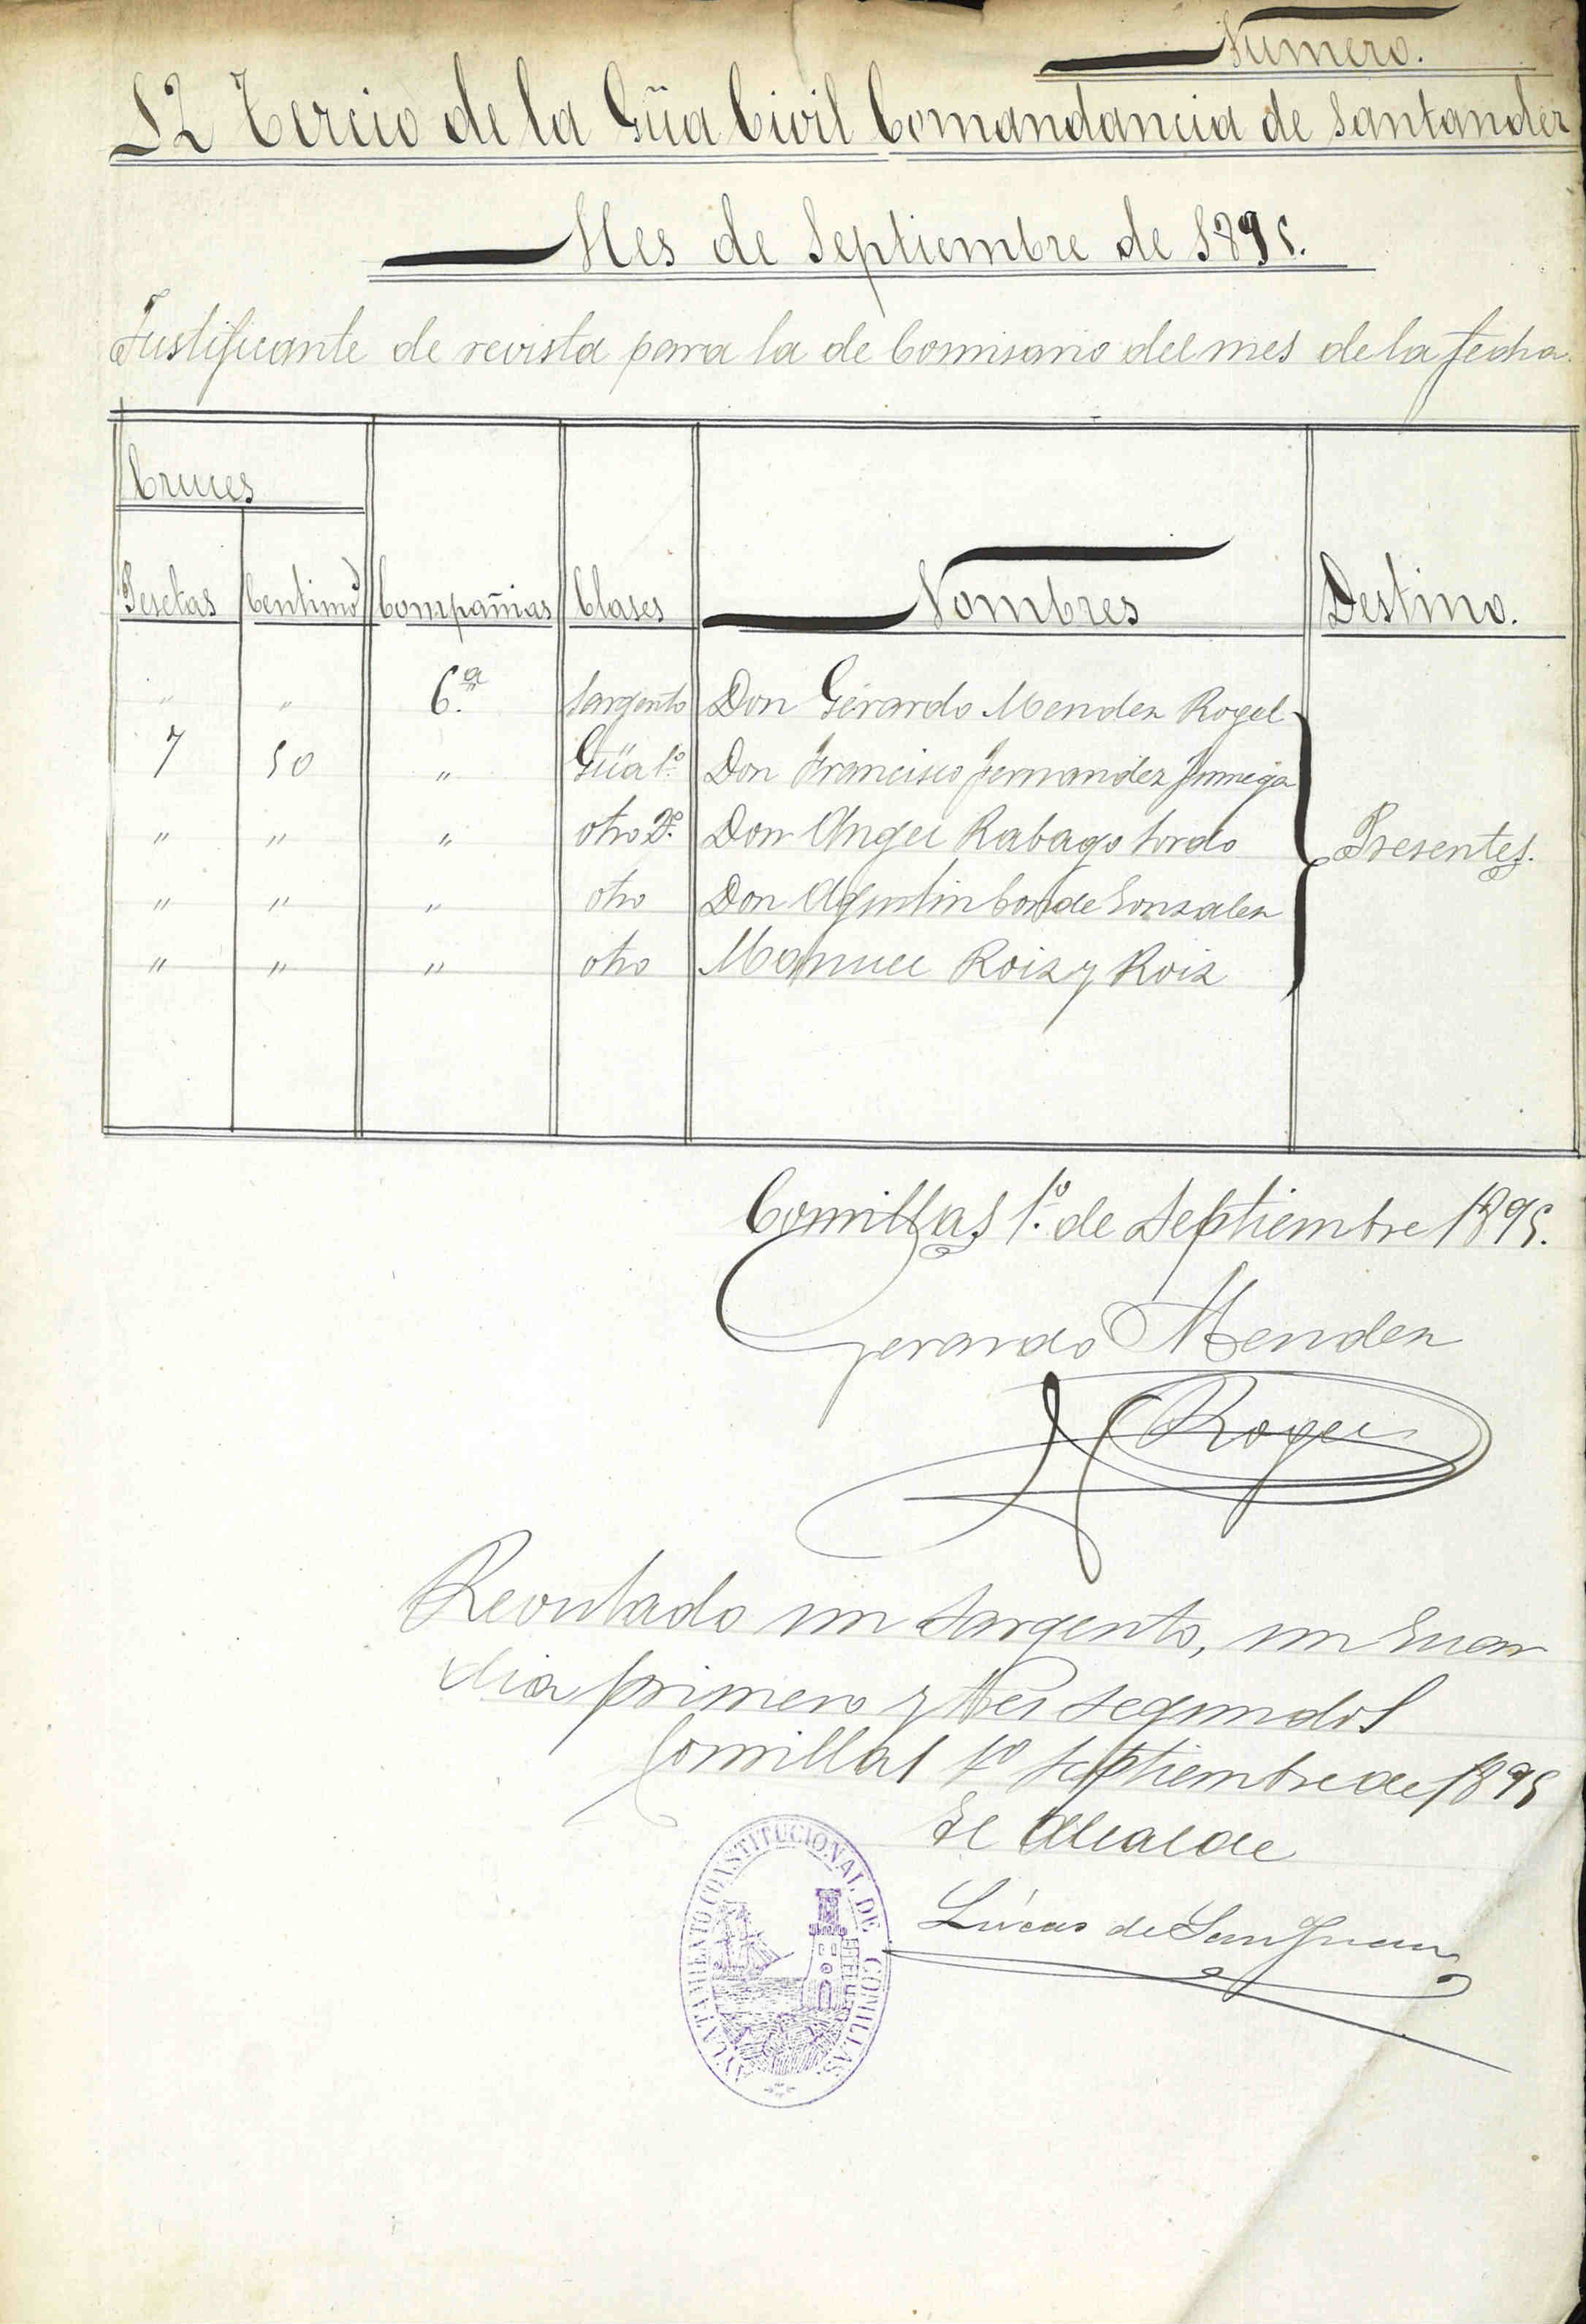 Numero.
12 Tercio de la Güa Civil Comandancia de Santander
Mes de Septiembre de 1895.
Justificante de revista para la de Comisario del mes de la fecha.
Cruces
Pesetas Centimos Compañias Clases Nombres Destino.
" " 6.ª Sargento Don Gerardo Mendez Rogel
7 50 " Güa 1º Don Francisco Fernandez
" " " otro 2º. Don Angel Rabago Tordo
Presentes.
" " " otro Don Agustin Conde Gonzalez
" " " otro Manuel Roiz y Roiz
Comillas 1.º de Septiembre 1895.
Gerardo Mendez
Rogel
Revistado un Sargento, un Guar
dia primero y tres segundos
Comillas 1º Septiembre de 1895
El Alcalde
Lúcas de San Juan
AYUNTAMIENTO CONSTITUCIONAL DE COMILLAS